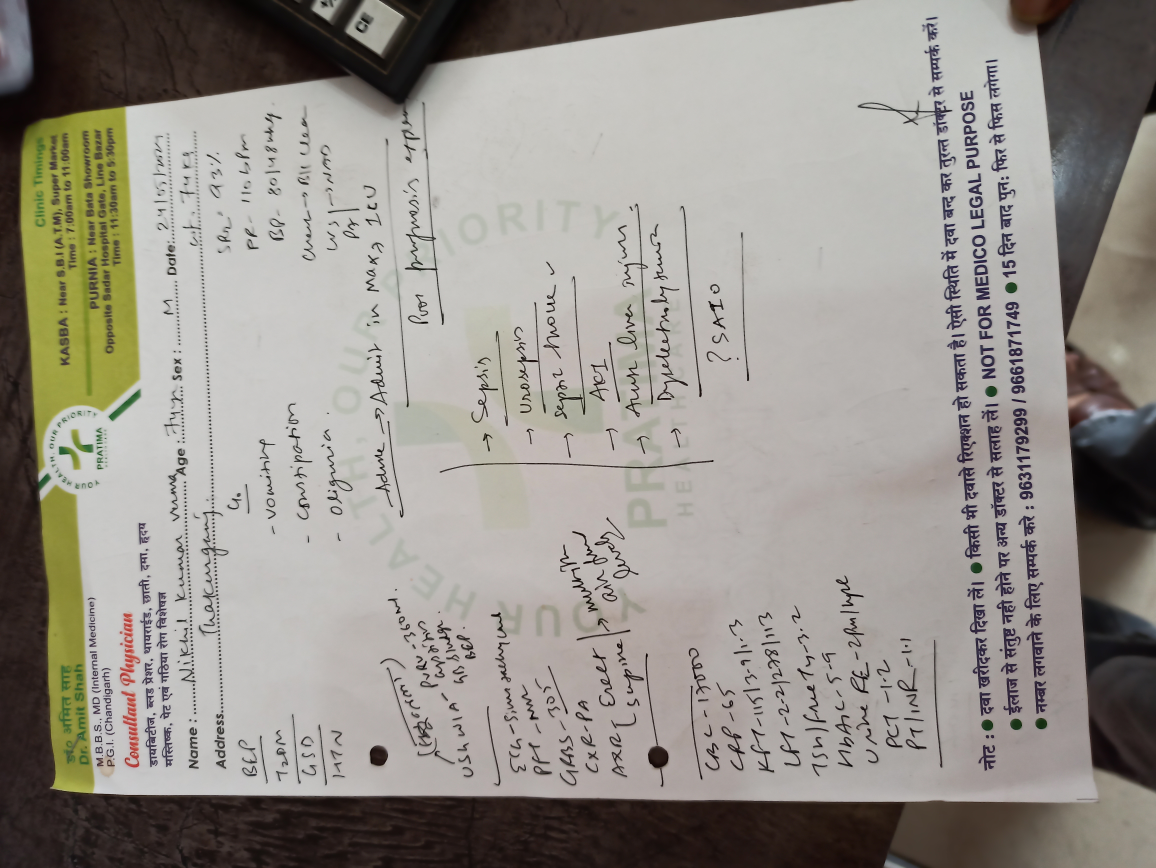 डा० अमित साह
Dr. Amit Shah
M.B.B.S., MD (Internal Medicine)
P.G.I. (Chandigarh)
Consultant Physician
डायबिटीज, ब्लड प्रेशर, थायराईड, छाती, दमा, हृदय
मस्तिष्क, पेट एवं गठिया रोग विशेषज्ञ
YOUR HEALTH, OUR PRIORITY
PRATIMA
Clinic Timings
KASBA : Near S.B.I (A.T.M), Super Market
Time : 7:00am to 11:00am
PURNIA : Near Bata Showroom
Opposite Sadar Hospital Gate, Line Bazar
Time : 11:30am to 5:30pm
Name : Nikhil Kumar Verma Age : 74yrs Sex : M Date:
Address Thakurganj
wt. 74kg
BEP
T2DM
GSD
HTN
- vomiting
- constipation
- oliguria
SPO2 93%
PR- 110bpm
BP- 80/48mmHg
Chest → B/L clear
Advice → Admit in max, ICU
Poor prognosis
USG W/A -
BEP
PFT -
GRBS - 305
CXR-PA
AXR Erect
Supine
→ multiple
air fluid
levels
→ Sepsis
→ Urosepsis
→ septic shock
→ AKI
→ Acute liver injury
→ Dyselectrolytemia
? SAIO
CBC - 17000
CRP - 65
KFT - 115/3.9/1.3
LFT - 2.2/278/113
TSH/free T4 - 3.2
HbA1c - 5.9
Urine RE -
PCT - 1.2
PT/INR - 1.1
YOUR HEALTH, OUR PRIORITY
PRATIMA
HEALTH CARE
नोट : ● दवा खरीदकर दिखा लें। ● किसी भी दवासे रिएक्शन हो सकता है। ऐसी स्थिति में दवा बन्द कर तुरन्त डॉक्टर से सम्पर्क करें।
● ईलाज से संतुष्ट नही होने पर अन्य डॉक्टर से सलाह लें। ● NOT FOR MEDICO LEGAL PURPOSE
● नम्बर लगवाने के लिए सम्पर्क करे : 9631179299 / 9661871749 ● 15 दिन बाद पुन: फिर से फिस लगेगा।
CE